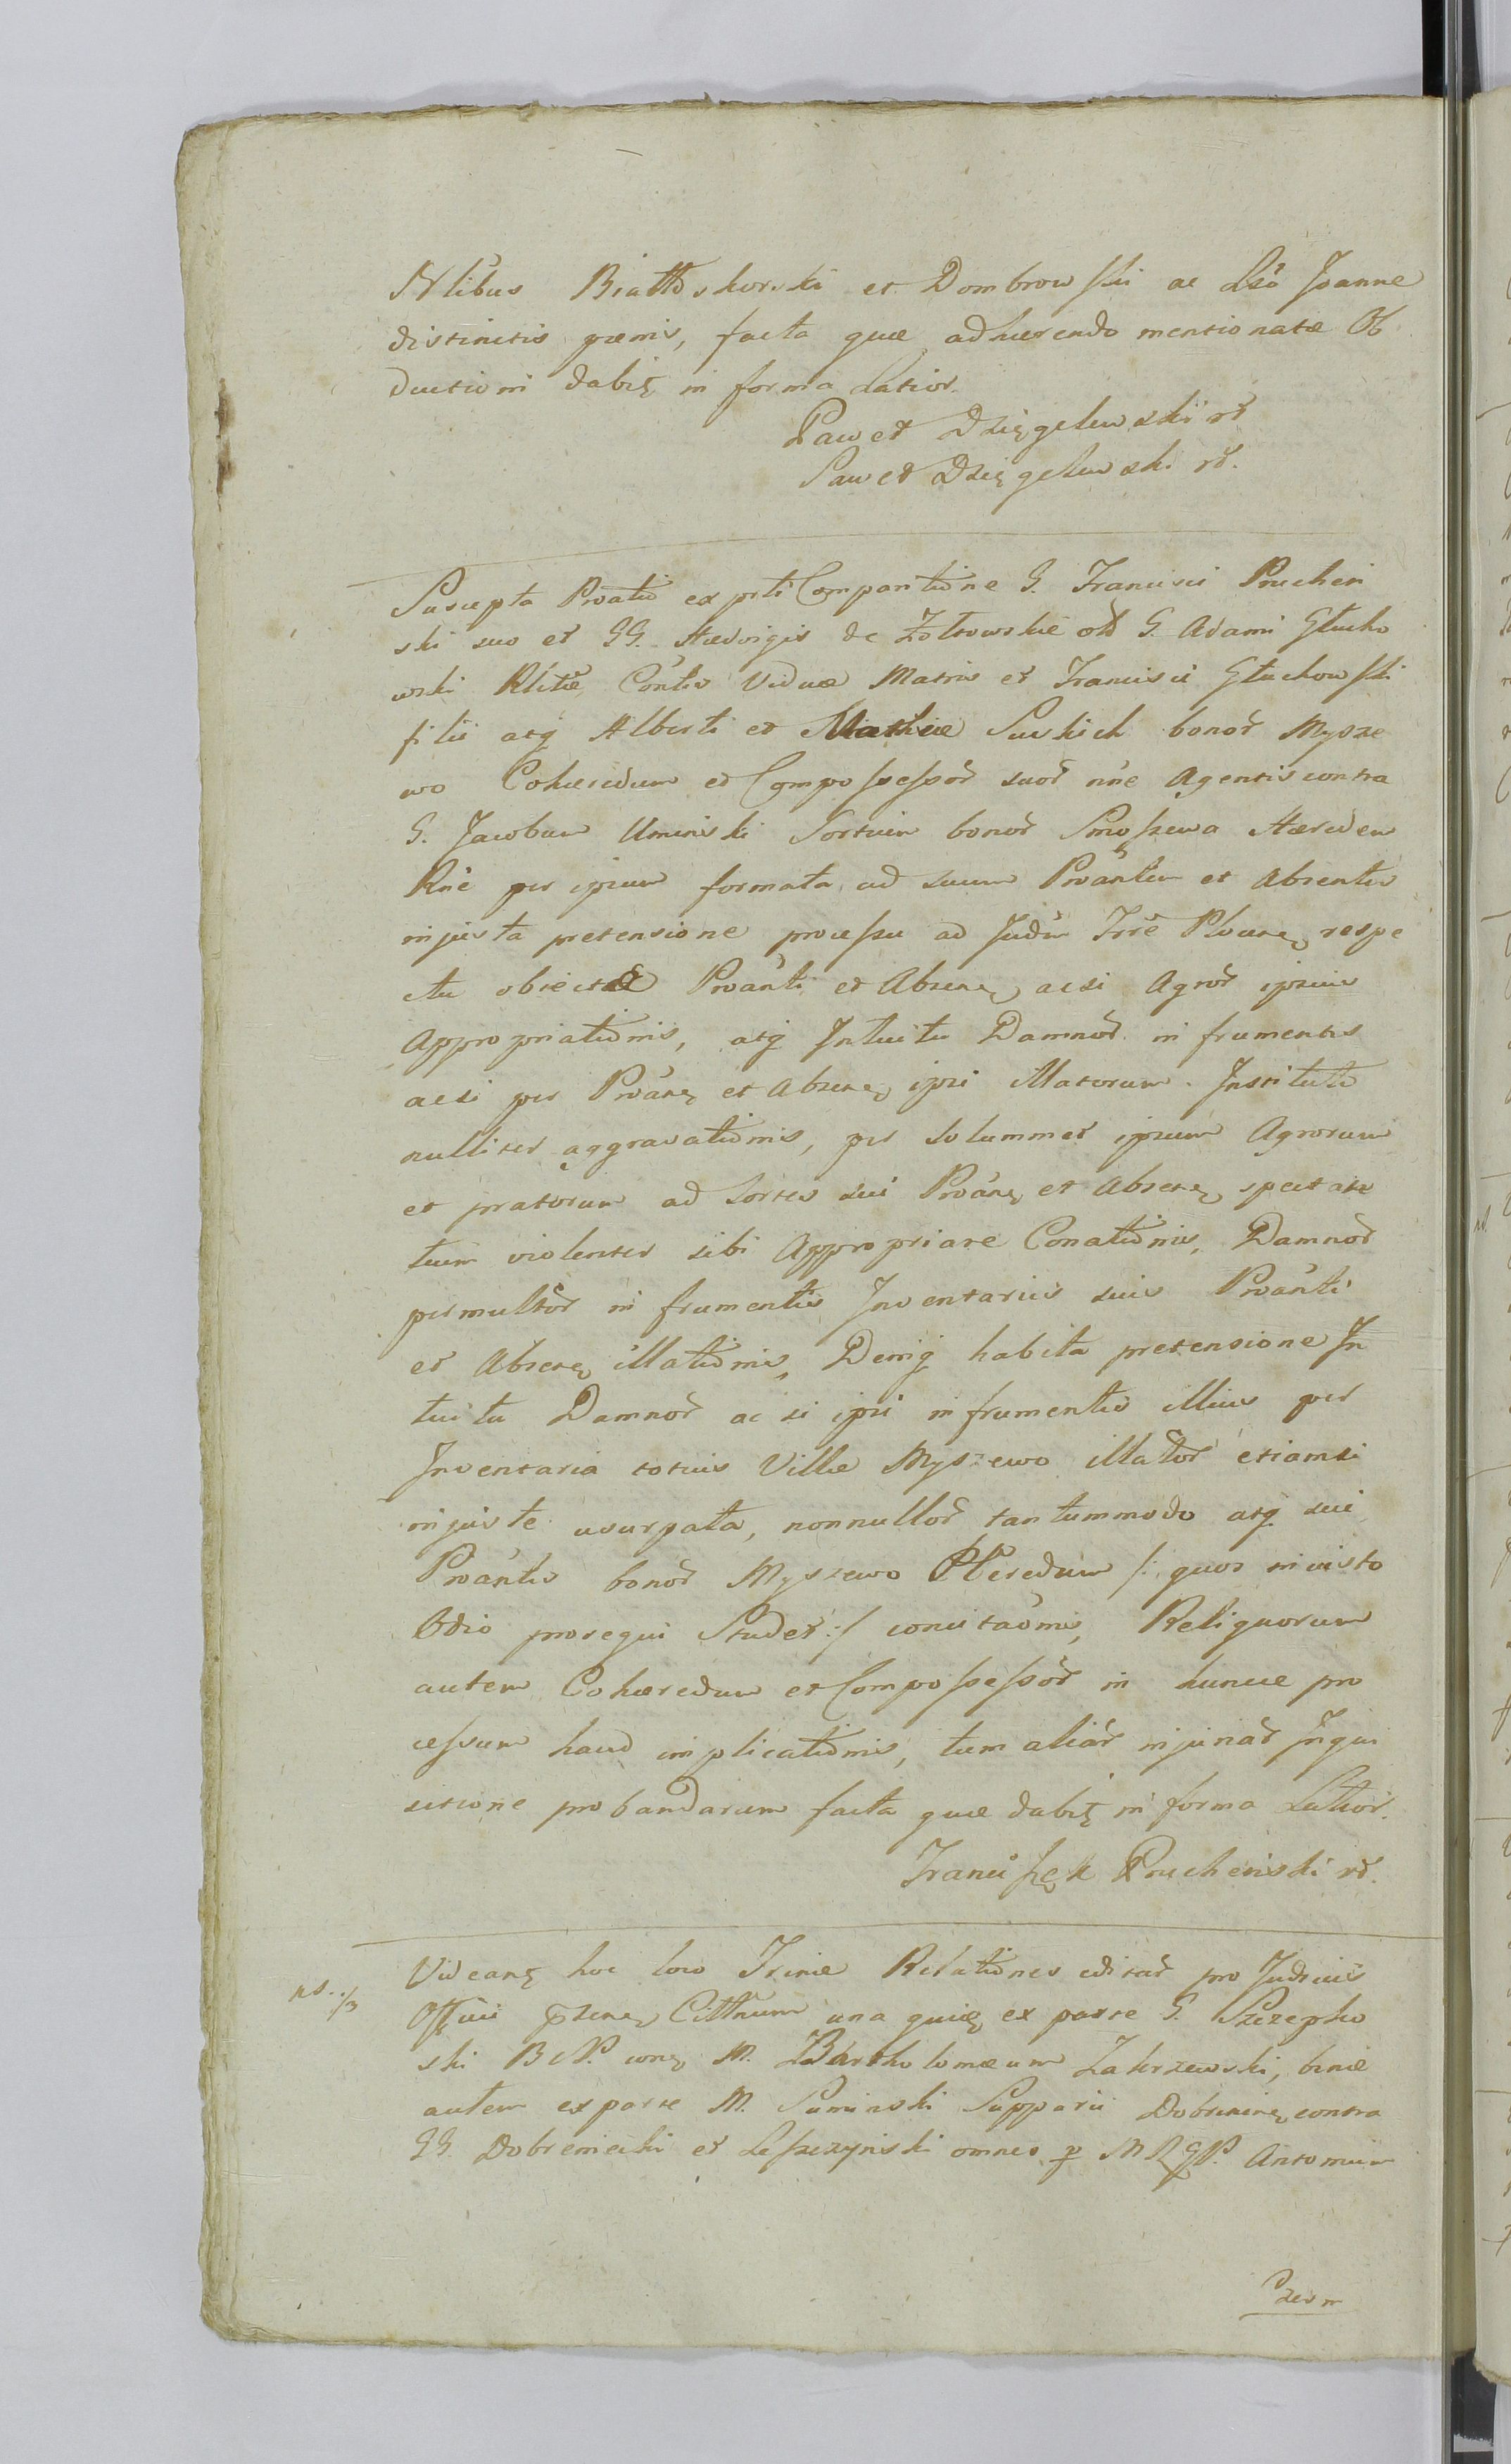 Nlibus Białłoskorski et Dombrowski ac Lso Joanne
distinctis pœnis, facta quæ adhærendo mentionatæ Ob
ductioni dabit in forma Latior.
Paweł Dzięgelewski rł
Paweł Dzięgelewski rł.
Suscepta Proatio ex prti Comparitione G. Francisci Prucheń
ski suo et GG. Hædvigis de Zołtowskie olt G. Adami Głucho
wski Rlitæ Contis Viduæ Matris et Francisci Głuchowski
filii atq Alberti et Mathiæ Suskich bonor Mysze
wo Cohæredum et Compossessor suor nne Agentis contra
G. Jacobum Uminski Sortium bonor Smoszewa Hæredem
Rne per ipsum formata ad suum Proantem et Absentes
injusta pretensione processu ad Judm Trre Plocens respe
ctu obiectæ Proanti et Absens acsi Agror ipsius
Appropriationis, atq Intuitu Damnor in frumentis
acsi per Proans et Absens ipsi illatorum. Instituti
nulliter aggravationis, per solummet ipsum Agrorum
et pratorum ad Sortes sui Proans et Absens spectan
tium violenter sibi Appropriare Conationis, Damnor
permultor in frumentis Inventariis suis Proanti
et Absens illationis, Deniq habita pretensione In
tuitu Damnor ac si ipsi in frumentis illius per
Inventaria totius Villæ Myszewo illator etiamsi
injuste usurpata, nonnullor tantummodo atq sui
Proantis bonor Myszewo Heredum /: quos iniusto
Odio prosequi Studet :/ concitaonis, Reliquorum
autem Cohæredum et Compossessor in huncce pro
cessum haud implicationis, tum aliar injuriar Inqui
sitione probandarum facta quæ dabit in forma Latior.
Franciszek Pruchenski rł.
Videant hoc loco Trinæ Relationes editar pro Judiciis
ns. ·/3
Officii pzens Cittnum una quid ex parte G. Szczepko
ski BNP. cons M. Bartholomæum Zakrzewski, binæ
autem ex parte M. Suminski Supparii Dobrinens contra
GG. Dobreniecki et Leszczynski omnes p MRGP. Antonium